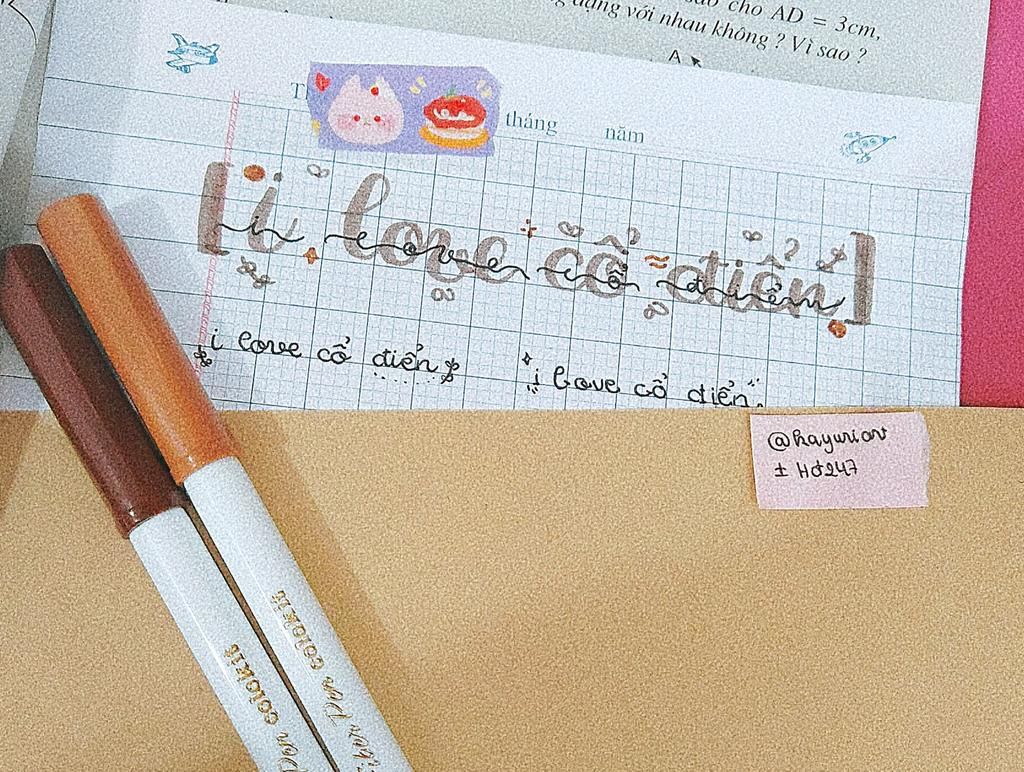 cho AD = 3cm,
với nhau không ? Vì sao ?
A
tháng năm
[i love cổ điển]
i love cổ điển
i love cổ điển
i love cổ điển
@hayuriort
± Hd247
Pen colokit
Fiber Pen colokit